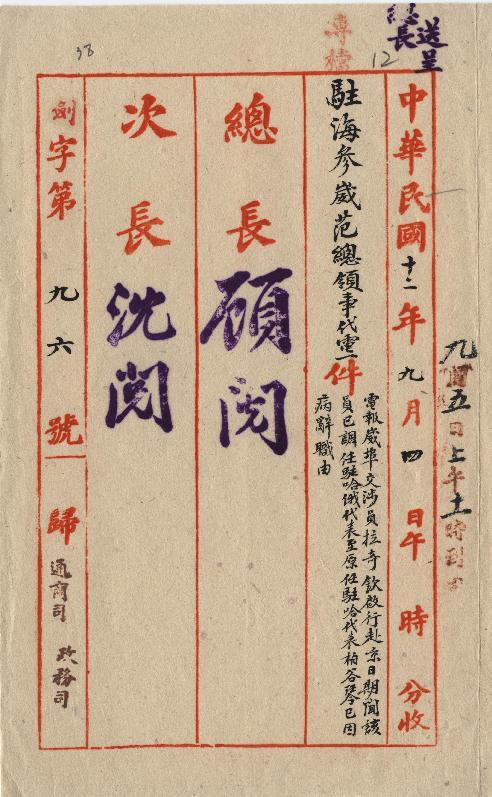 送呈
總長
專檔
12
38
中華民國十二年九月四日午時分收
九月五日上午十一時到
駐海參崴范總領事代電一件
電報崴埠交涉員拉奇欽啟行赴京日期聞該
員已調任駐哈俄代表至原任駐哈代表柏谷琴已因
病辭職由
總長
顧閱
次長
沈閱
字第九六號
歸
通商司
政務司